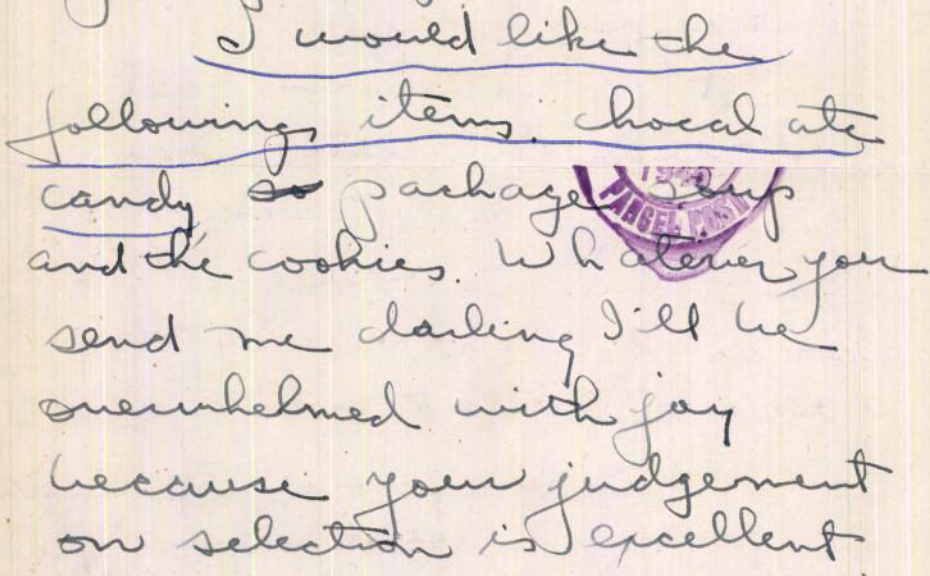 I would like the
following items. chocalate
candy so package soup
and the cookies. Whatever you
send me darling I'll be
overwhelmed with joy
because your judgement
on selection is excellent
PARCEL POST